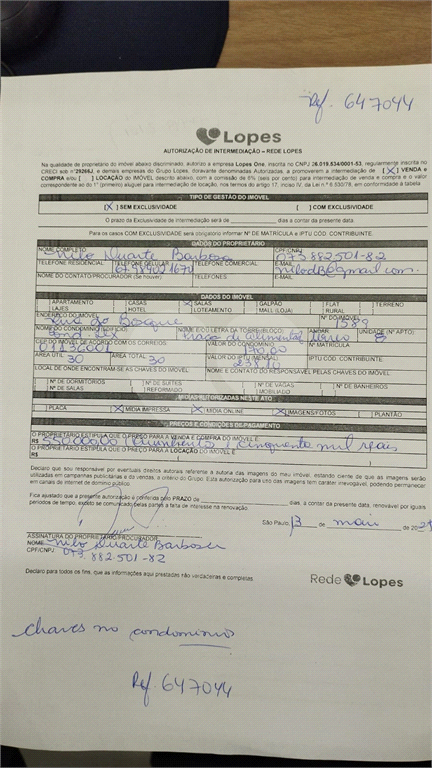 Ref. 647044
Lopes
AUTORIZAÇÃO DE INTERMEDIAÇÃO – REDE LOPES
Na qualidade de proprietário do imóvel abaixo discriminado, autorizo a empresa Lopes One, inscrita no CNPJ 26.019.534/0001-53, regularmente inscrita no
CRECI sob nº 29266J, e demais empresas do Grupo Lopes, doravante denominadas Autorizadas, a promoverem a intermediação de [X] VENDA e
COMPRA e/ou [ ] LOCAÇÃO do IMÓVEL descrito abaixo, com a comissão de 6% (seis por cento) para intermediação de venda e compra e o valor
correspondente ao do 1º (primeiro) aluguel para intermediação de locação, nos termos do artigo 17, inciso IV, da Lei n.º 6.530/78, em conformidade à tabela
TIPO DE GESTÃO DO IMÓVEL
[X] SEM EXCLUSIVIDADE [ ] COM EXCLUSIVIDADE
O prazo da Exclusividade de Intermediação será de ____ dias a contar da presente data.
Para os casos COM EXCLUSIVIDADE será obrigatório informar Nº DE MATRÍCULA e IPTU CÓD. CONTRIBUINTE.
DADOS DO PROPRIETÁRIO
NOME COMPLETO Nilo Duarte Barbosa CPF/CNPJ 073.882.501-82
TELEFONE RESIDENCIAL TELEFONE CELULAR TELEFONE COMERCIAL E-MAIL
NOME DO CONTATO/PROCURADOR (Se houver) TELEFONES E-MAIL
DADOS DO IMÓVEL
APARTAMENTO CASAS X SALAS GALPÃO FLAT TERRENO
LAJES HOTEL LOTEAMENTO MALL (LOJA) RURAL
ENDEREÇO DO IMÓVEL Rua do Bosque Nº DO IMÓVEL 1589
NOME DO CONDOMÍNIO/EDIFÍCIO NOME E/OU LETRA DA TORRE/BLOCO ANDAR UNIDADE (Nº APTO)
CEP DO IMÓVEL DE ACORDO COM OS CORREIOS 01136001 VALOR DO CONDOMÍNIO Nº MATRÍCULA
ÁREA ÚTIL 30 ÁREA TOTAL 30 VALOR DO IPTU (MENSAL) IPTU CÓD. CONTRIBUINTE
LOCAL DE ONDE ENCONTRAM-SE AS CHAVES DO IMÓVEL NOME E CONTATO DO RESPONSÁVEL PELAS CHAVES DO IMÓVEL
Nº DE DORMITÓRIOS Nº DE SUÍTES Nº DE VAGAS Nº DE BANHEIROS
Nº DE SALAS REFORMADO MOBILIADO
MÍDIAS AUTORIZADAS NESTE ATO
PLACA X MÍDIA IMPRESSA X MÍDIA ONLINE X IMAGENS/FOTOS PLANTÃO
PREÇOS E CONDIÇÕES DE PAGAMENTO
O PROPRIETÁRIO ESTIPULA QUE O PREÇO PARA A VENDA E COMPRA DO IMÓVEL É
R$ cinquenta mil reais
O PROPRIETÁRIO ESTIPULA QUE O PREÇO PARA A LOCAÇÃO DO IMÓVEL É
R$
Declaro que sou responsável por eventuais direitos autorais referente a autoria das imagens do meu imóvel, estando ciente de que as imagens serão
utilizadas em campanhas publicitárias e da vendas, a critério do Grupo. Esta autorização para uso das imagens tem caráter irrevogável, podendo permanecer
em canais de internet de domínio público.
Fica ajustado que a presente autorização é conferida pelo PRAZO de ____ dias, a contar da presente data, renovável por iguais
períodos de tempo, exceto se comunicado pelas partes a falta de interesse na renovação.
São Paulo, 13 de maio de 2024
ASSINATURA DO PROPRIETÁRIO/PROCURADOR
NOME: Nilo Duarte Barbosa
CPF/CNPJ 073.882.501-82
Declaro para todos os fins, que as informações aqui prestadas são verdadeiras e completas.
Rede Lopes
chaves no condomínio
Ref. 647044